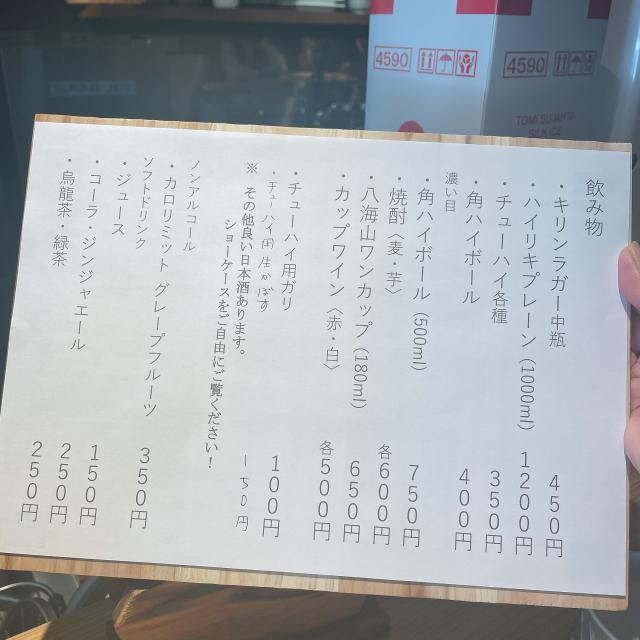 4590
4590
飲み物
・キリンラガー中瓶 450円
・ハイリキプレーン(1000ml) 1200円
・チューハイ各種 350円
・角ハイボール 400円
濃い目
・角ハイボール(500ml) 750円
・焼酎〈麦・芋〉 各600円
・八海山ワンカップ(180ml) 650円
・カップワイン〈赤・白〉 各500円
・チューハイ用ガリ 100円
・チューハイ用生かぼす 150円
※ その他良い日本酒あります。
ショーケースをご自由にご覧ください!
ノンアルコール
・カロリミット グレープフルーツ 350円
ソフトドリンク
・ジュース 150円
・コーラ・ジンジャエール 250円
・烏龍茶・緑茶 250円